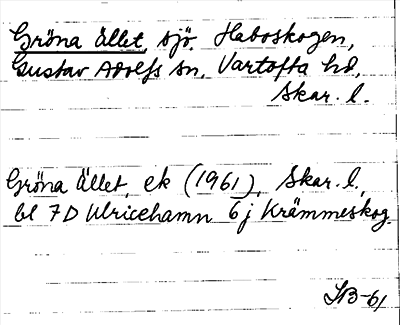 Gröna ället, sjö. Haboskogen,
Gustav Adolfs sn, Vartofta hd,
Skar. l.
Gröna Ället, ek (1961), Skar. l.,
bl 7D Ulricehamn 6j Krämmeskog.
SB-61